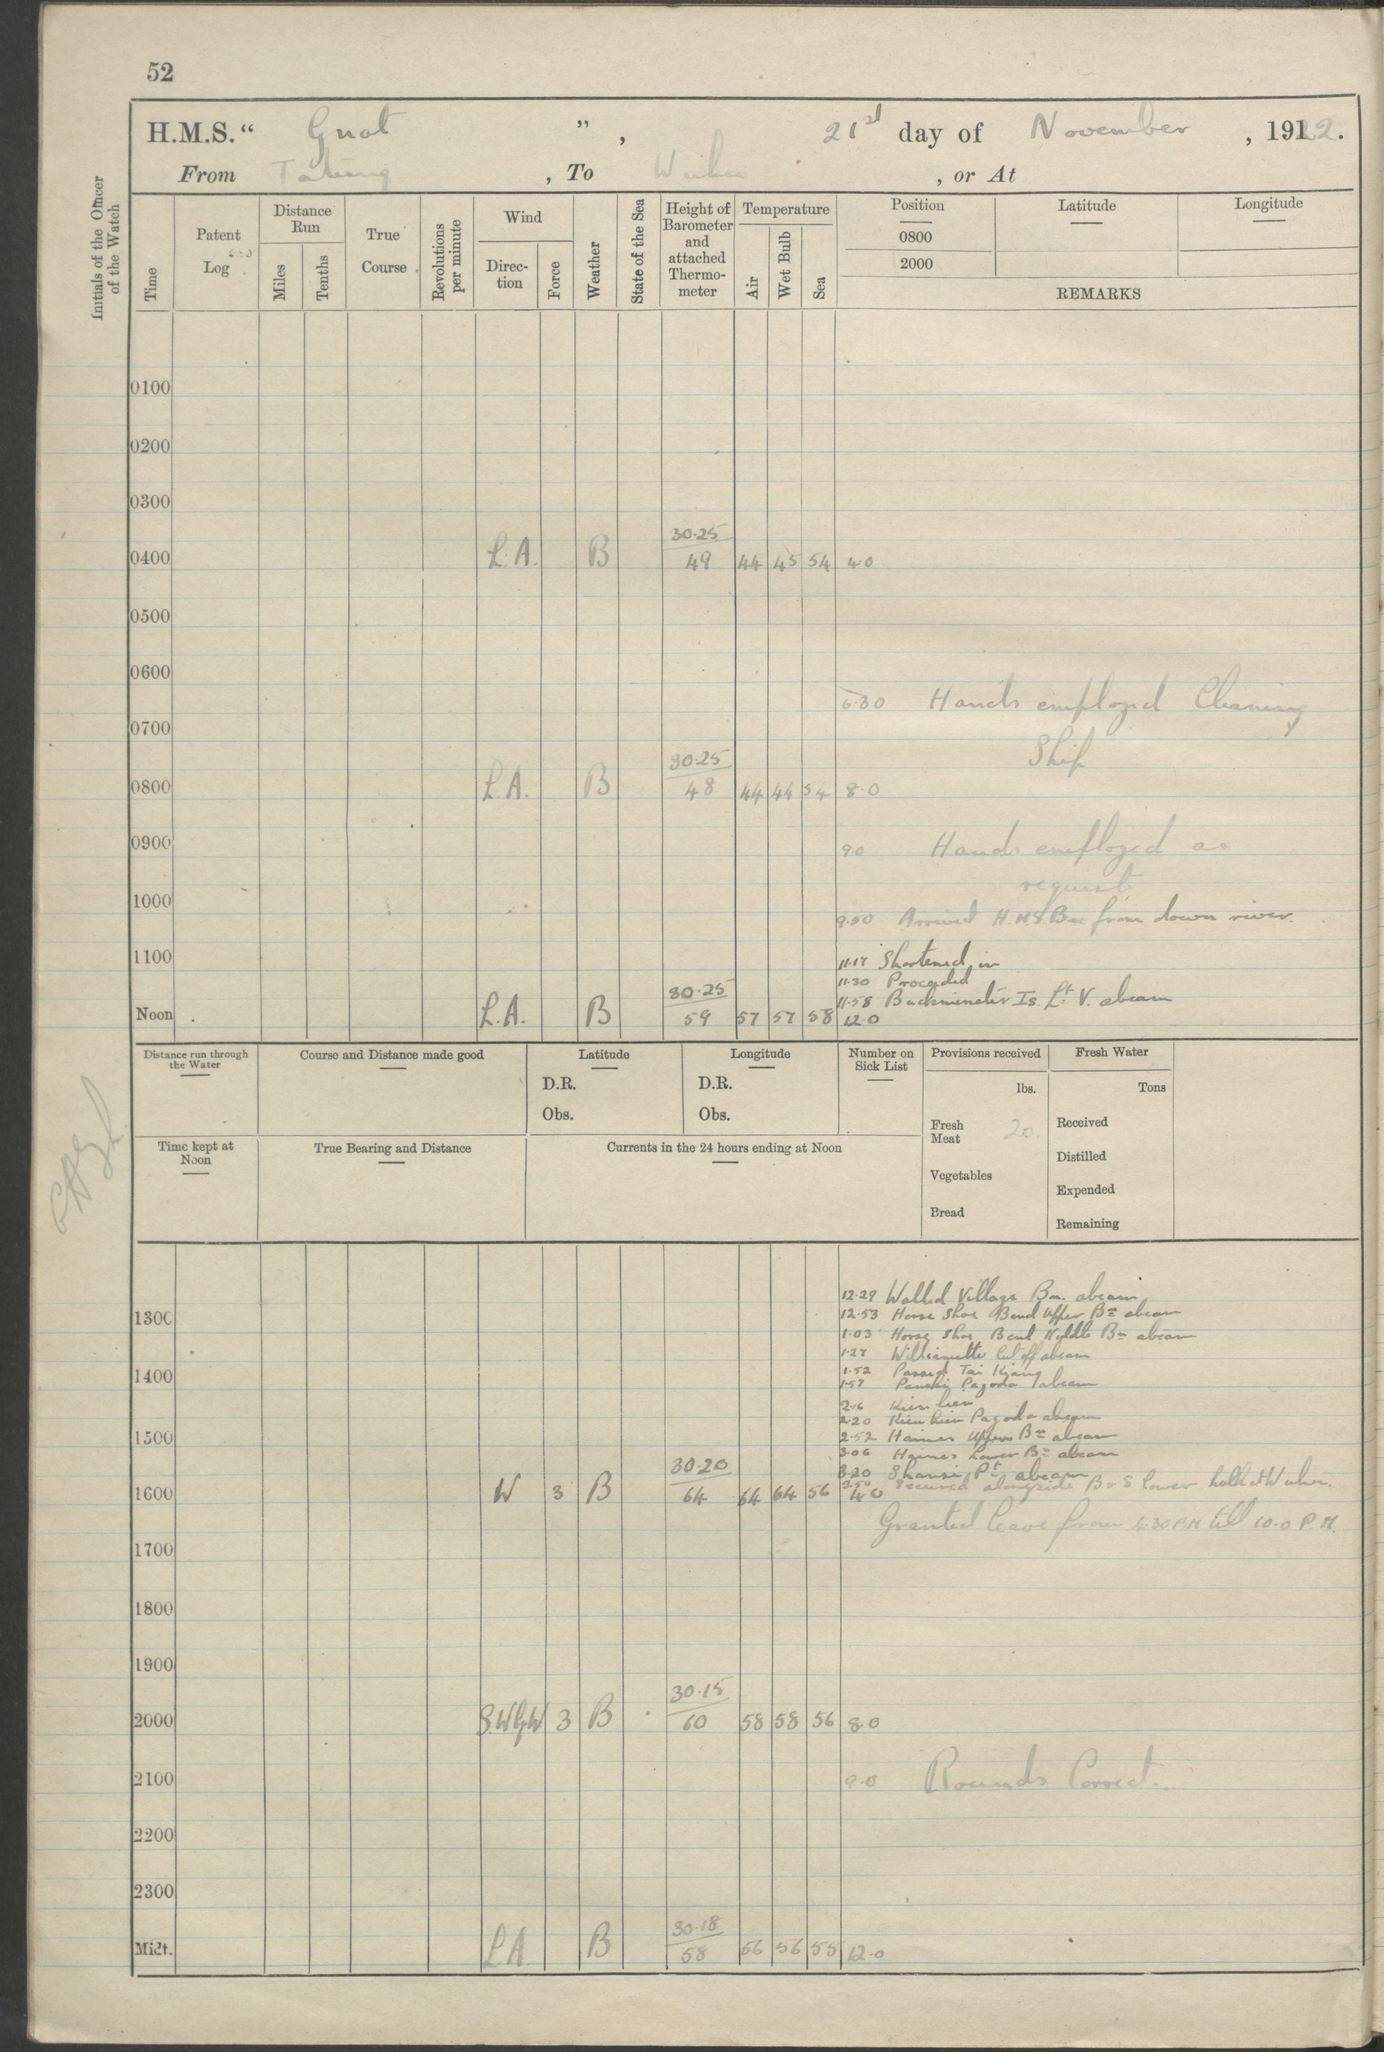 52
H.M.S. “ Gnat ” , 21st day of November , 1922.
From Tatung , To Wuhu , or At
Initials of the Officer of the Watch
Time
Patent Log
Distance Run
Miles
Tenths
True Course
Revolutions per minute
Wind
Direction
Force
Weather
State of the Sea
Height of Barometer and attached Thermometer
Temperature
Air
Wet Bulb
Sea
Position
0800
2000
Latitude
Longitude
REMARKS
0100
0200
0300
30.25
0400 L.A. B 49 44 45 54 4.0
0500
0600
6.30 Hands employed Cleaning
0700
Ship
30.25
0800 L.A. B 48 44 44 54 8.0
0900 9.0 Hands employed as
requisite
1000
9.50 Arrived H.M.S. Bee from down river.
1100
11.17 Shortened in
11.30 Proceeded
30.25
11.58 Buckminster Is. Lt. V. abeam
Noon L.A. B 59 57 57 58 12.0
Distance run through the Water
Course and Distance made good
Latitude
D.R.
Obs.
Longitude
D.R.
Obs.
Number on Sick List
Provisions received
lbs.
Fresh Meat 20.
Vegetables
Bread
Fresh Water
Tons
Received
Distilled
Expended
Remaining
Time kept at Noon
True Bearing and Distance
Currents in the 24 hours ending at Noon
12.29 Walled Village Bn. abeam
1300 12.53 Horse Shoe Bend Upper Bn abeam
1.03 Horse Shoe Bend Middle Bn abeam
1.27 Williamette Cut off abeam
1400 1.52 Passed Tai Kiang
1.57 Pagoda abeam
2.16 Kien hien
2.20 Kien hien Pagoda abeam
1500 2.52 Haines Upper Bn abeam
3.06 Haines Lower Bn abeam
30.20
3.20 Shansi Pt. abeam
3.50 Secured alongside B & S lower hulk at Wuhu.
1600 W 3 B 64 64 64 56 4.0
Granted leave from 4.30 P.M. till 10.0 P.M.
1700
1800
1900
30.15
2000 S.W by W 3 B 60 58 58 56 8.0
2100 9.0 Rounds Correct.
2200
2300
30.18
Midt. L.A B 58 56 56 55 12.0